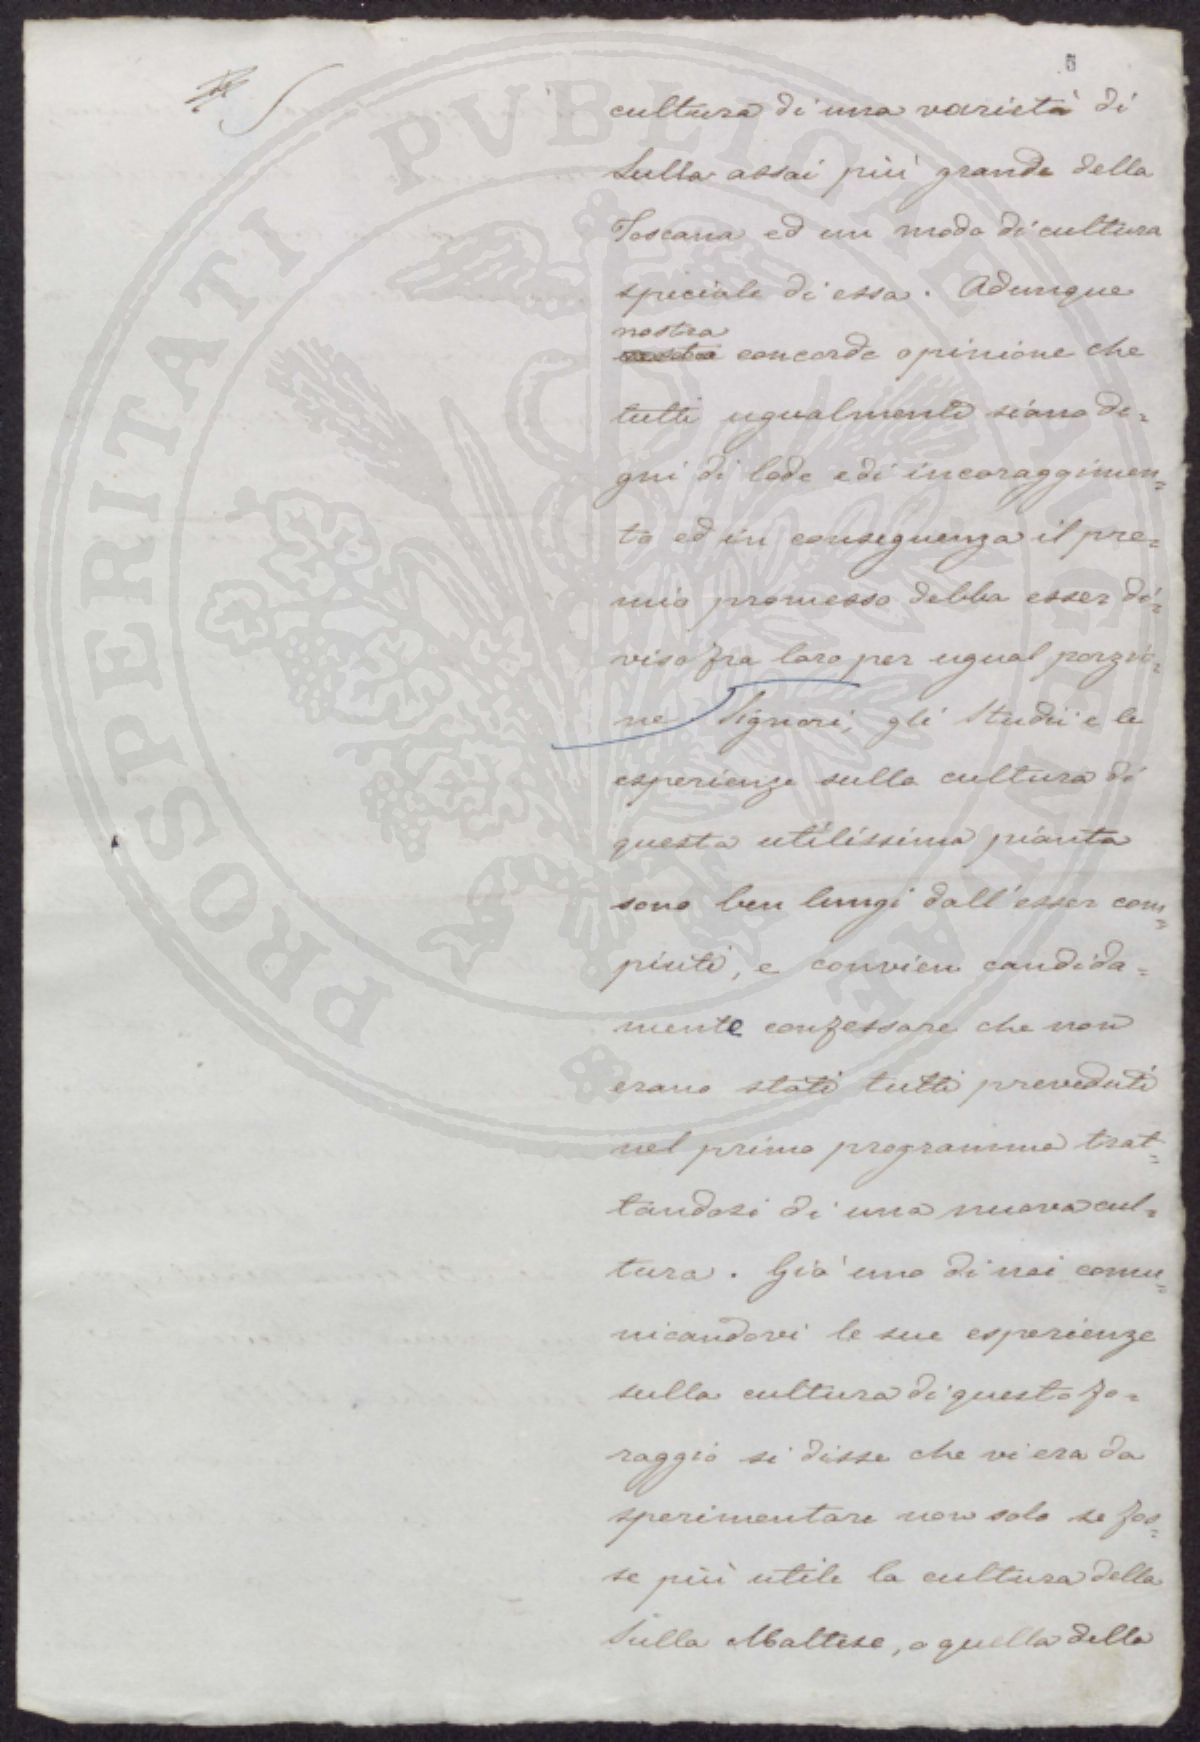 5
cultura di una varietà di
Sulla assai più grande della
Toscana ed un modo di cultura
speciale di essa. Adunque
nostra
concorde opinione che
tutti ugualmente siano de-
gni di lode e di incoraggimen=
to ed in conseguenza il pre=
mio promesso debba esser di=
viso fra loro per ugual porzio=
ne Signori, gli Studii e le
esperienze sulla cultura di
questa utilissima pianta
sono ben lungi dall'esser com=
piuti, e convien candida=
mente confessare che non
erano stati tutti preveduti
nel primo programma trat=
tandosi di una nuova cul=
tura. Già uno di noi comu=
nicandovi le sue esperienze
sulla cultura di questo fo=
raggio si disse che vi era da
sperimentare non solo se fos=
se più utile la cultura della
Sulla Maltese, o quella della
PROSPERITATI PVBLICAE AVGENDAE